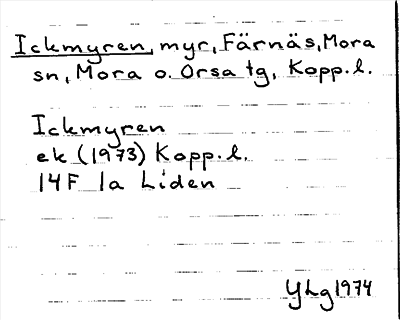 Ickmyren, myr, Färnäs, Mora
sn, Mora o. Orsa tg, Kopp. l.
Ickmyren
ek (1973) Kopp. l.
14F 1a Liden
YLg 1974